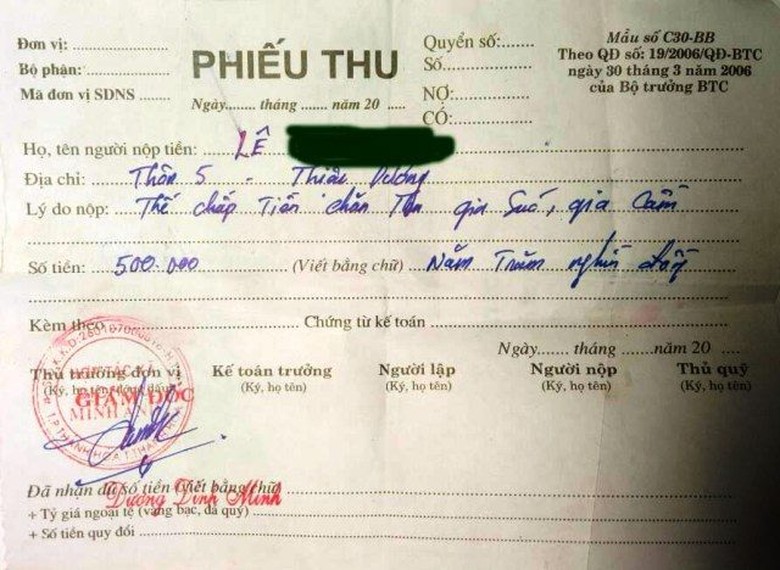 Đơn vị:
Bộ phận:
Mã đơn vị SDNS
PHIẾU THU
Ngày........ tháng ....... năm 20 .....
Quyển số:
Số
NỢ:
CÓ:
Mẫu số C30-BB
Theo QĐ số: 19/2006/QĐ-BTC
ngày 30 tháng 3 năm 2006
của Bộ trưởng BTC
Họ, tên người nộp tiền: LÊ
Địa chỉ: Thôn 5 - Thiệu Dương
Lý do nộp: Thế chấp Tiền chăn gia Súc, gia Cầm
Số tiền: 500.000 (Viết bằng chữ) Năm Trăm nghìn đồng
Kèm theo Chứng từ kế toán
Ngày....... tháng ........năm 20
Thủ trưởng đơn vị Kế toán trưởng Người lập Người nộp Thủ quỹ
(Ký, họ tên, đóng dấu) (Ký, họ tên) (Ký, họ tên) (Ký, họ tên) (Ký, họ tên)
GIÁM ĐỐC
MINH ANH
T.P THANH HÓA T.THANH HÓA
Đã nhận đủ số tiền (viết bằng chữ)
Dương Đình Minh
+ Tỷ giá ngoại tệ (vàng bạc, đá quý)
+ Số tiền quy đổi